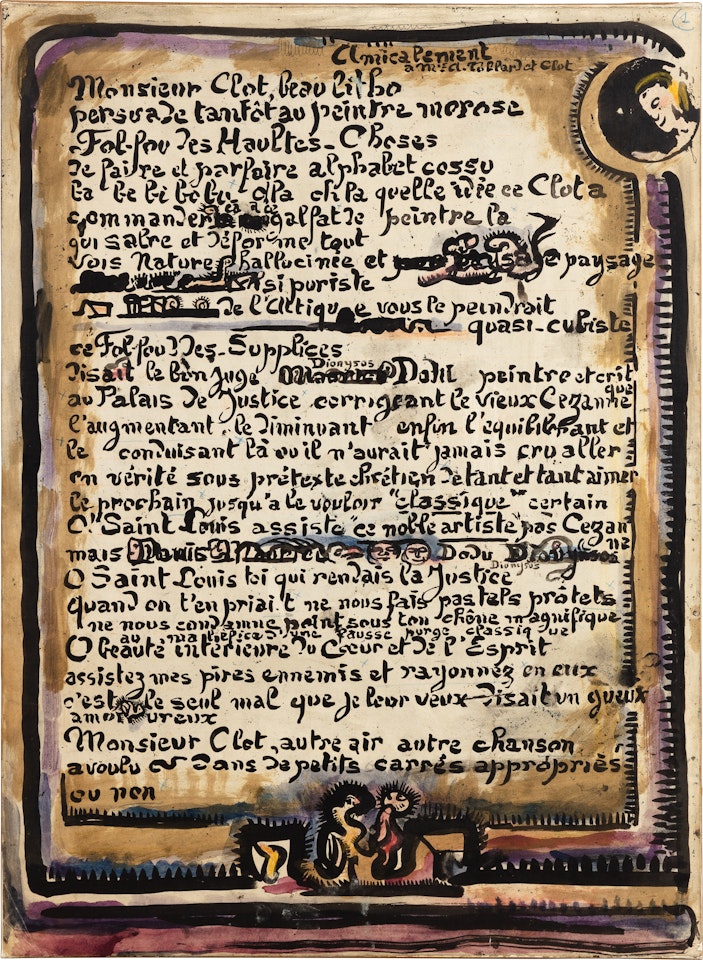 Amicalement
à Mrs A. Tallard et Clot
Monsieur Clot, beau litho
persuade tantôt au peintre morose
Fol-fou des Haultes-Choses
de faire et parfaire alphabet cossu
ba be bi bo bu. quelle idée ce Clot a
commander galfat de peintre la
qui sabre et déforme tout
vois Nature hallucinée et paysage
si puriste
de l'Attique vous le peindrait
quasi-cubiste
ce Fol-fou des-Supplices
Dionysos
disait le bon Juge Dodu peintre et crit
que
au Palais de Justice corrigeant le vieux Cezanne
l'augmentant. le diminuant enfin l'équilibrant et
le conduisant là ou il n'aurait jamais cru aller
en vérité sous prétexte chrétien de tant et tant aimer
le prochain jusqu'a le vouloir "classique" certain
O Saint Louis assiste ce noble artiste pas Cezan
ne
mais Dodu Dionysos
Dionysos
O Saint Louis toi qui rendais la Justice
quand on t'en priait ne nous fais pas tels prôtets
ne nous condamne point sous ton chêne magnifique
au maléfice d'une fausse purge classique
O beauté intérieure du Cœur et de l'Esprit
assistez mes pires ennemis et rayonnez en eux
c'est le seul mal que je leur veux disait un gueux
amoureux
Monsieur Clot, autre air autre chanson
a voulu dans de petits carrés appropriés
ou non
1